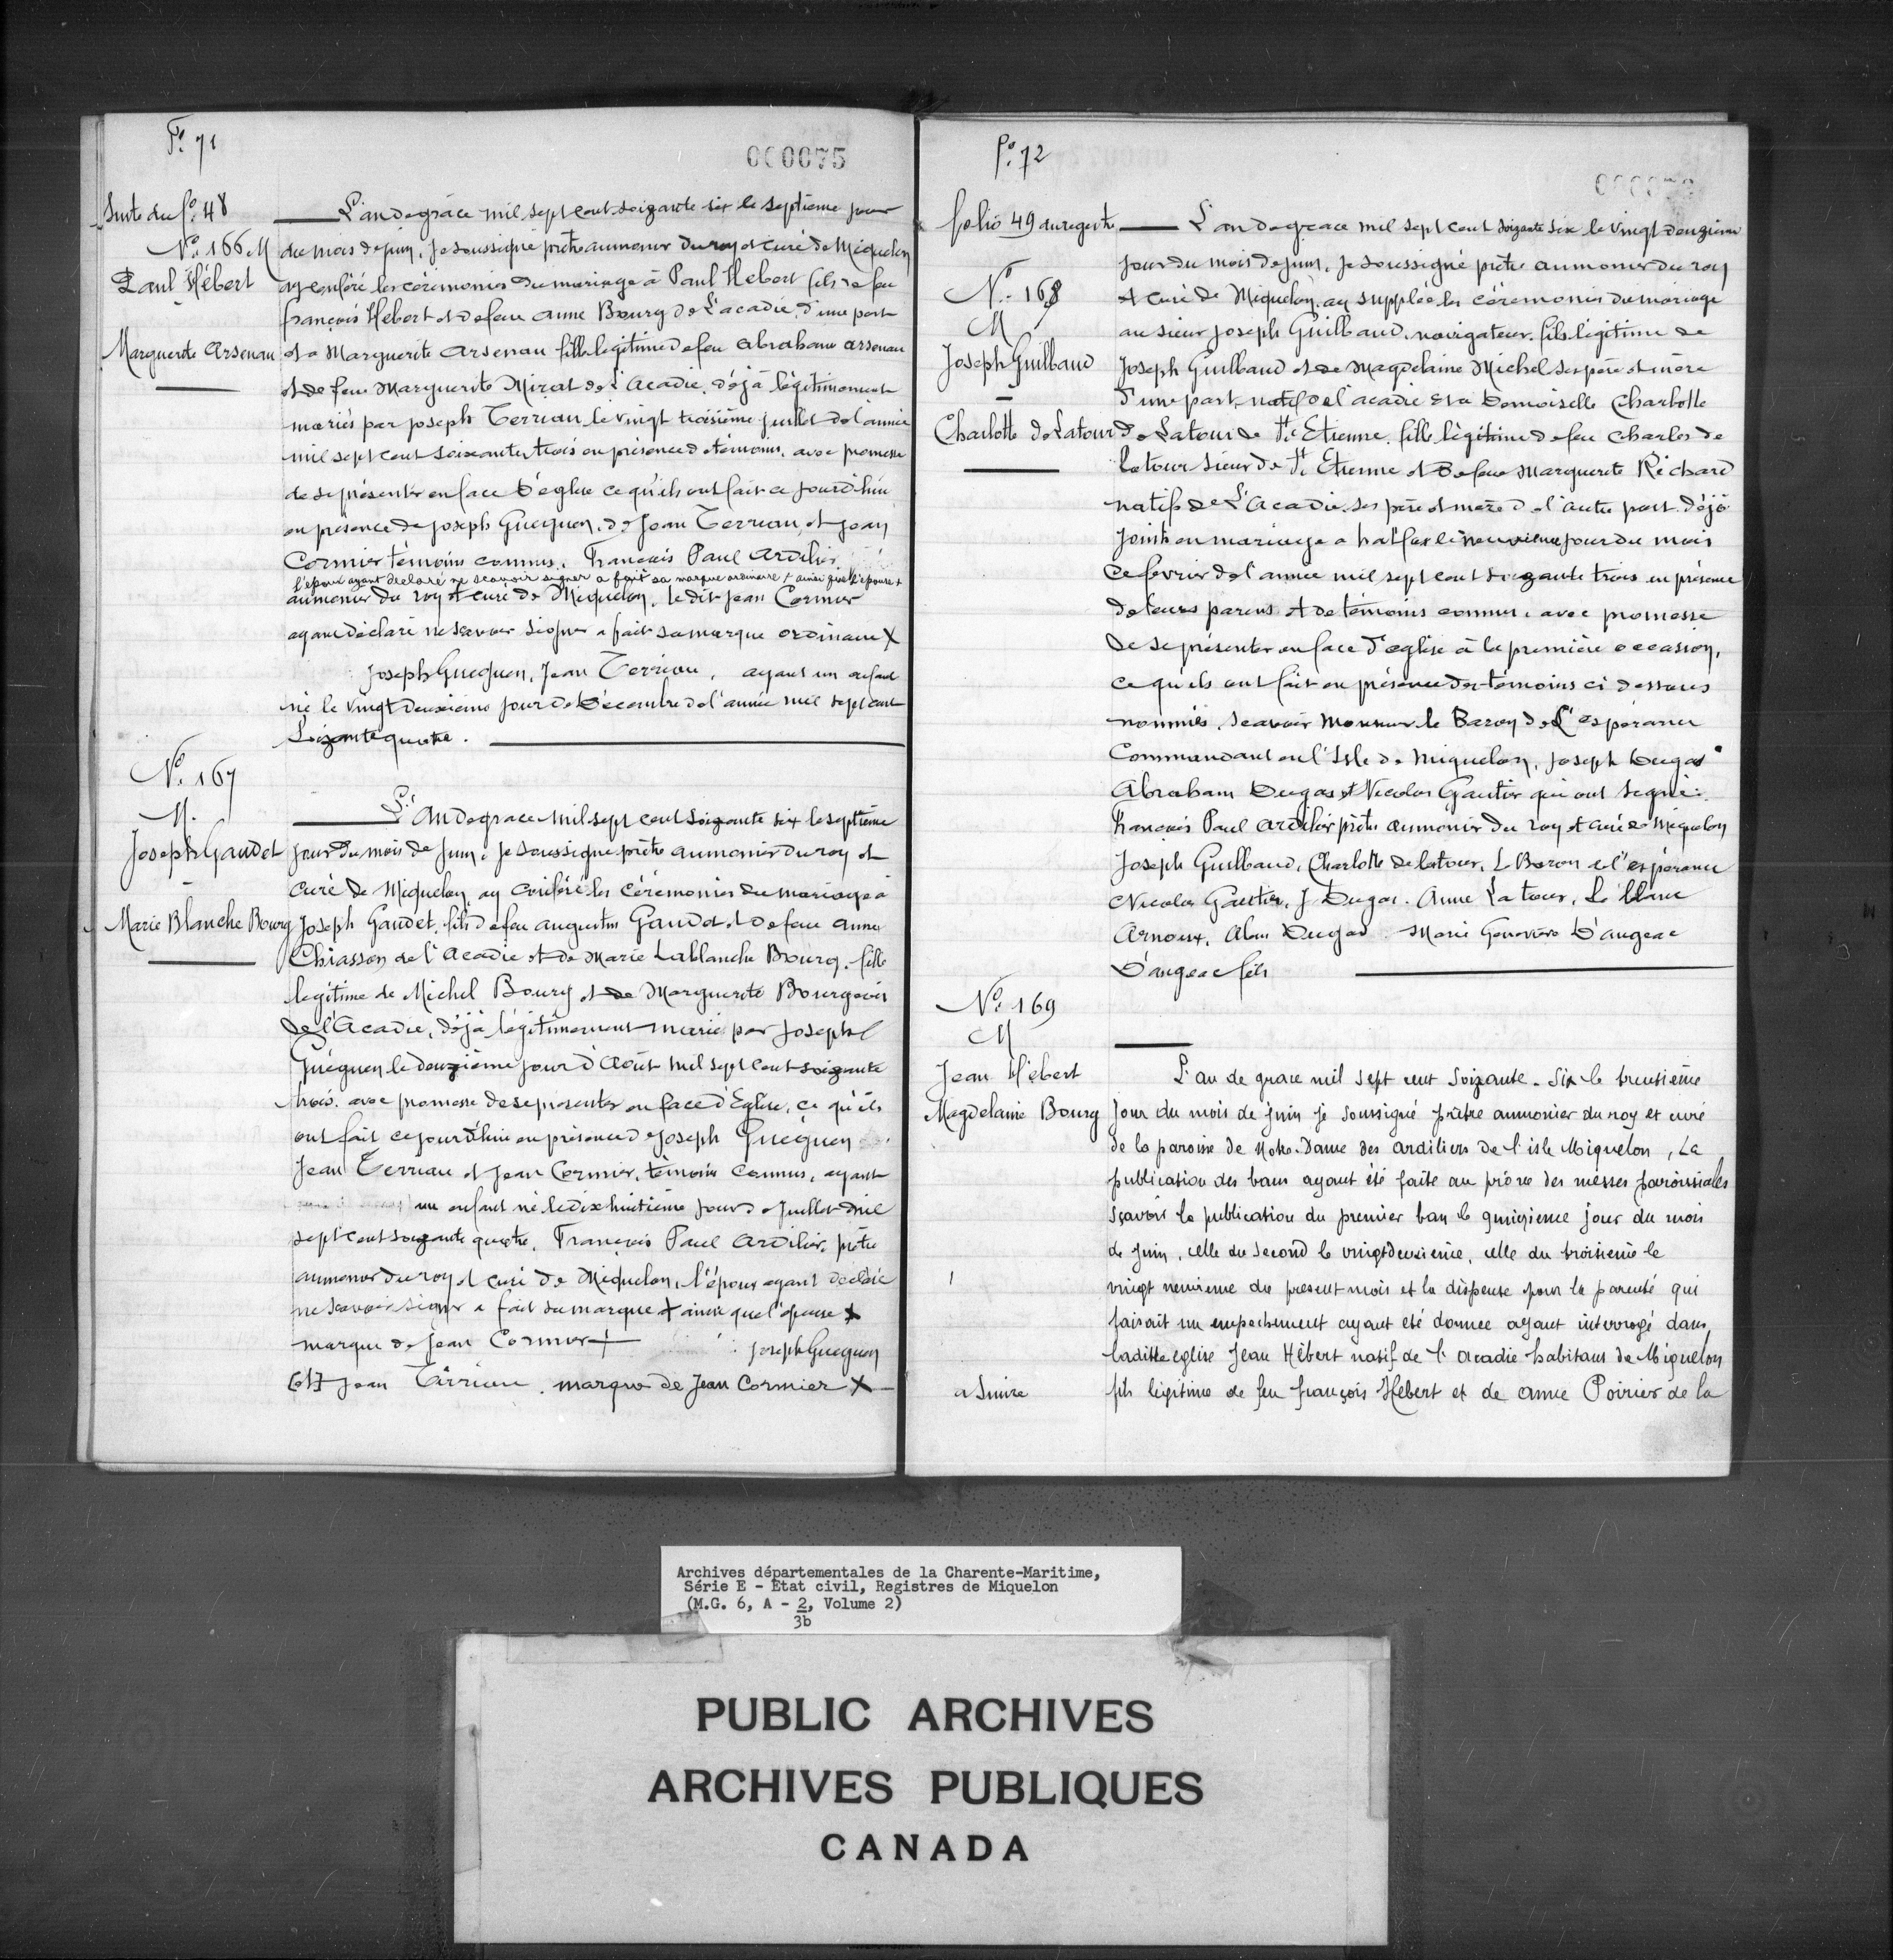 Fo. 71
000075
Suite du fo. 48
No. 166 M
Paul Hébert
-
Marguerite Arsenau
L'an de grâce mil sept cent soizante six le septième jour
du mois de juin, je soussigné prêtre aumonier du roy et curé de Miquelon
ay conféré les cérémonies du mariage à Paul Hebert fils de feu
françois Hebert et de feue Anne Bourg de L'acadie, d'une part
et à Marguerite Arsenau fille legitime de feu Abraham Arsenau
et de feue Marguerite Mirat de l'Acadie, déjà légitimement
mariés par joseph Terriau, le vingt troisième juillet de l'année
mil sept cent soixante trois en présence de témoins, avec promesse
de se présenter en face d'église ce qu'ils ont fait ce jourd'hui
en présence de joseph Gueguen, de Jean Terriau, et jean
Cormier témoins connus, François Paul Ardilier
l'époux ayant declaré ne scavoir signer a fait sa marque ordinaire + ainsi que l'épouse +
aumonier du roy et curé de Miquelon, le dit jean Cormier
ayant déclaré ne scavoir signer a fait sa marque ordinaire X
joseph Gueguen, Jean Terriau, ayant un enfant
né le vingt deuxième jour de décembre de l'année mil sept cent
Soizante quatre.
No. 167
M.
Joseph Gaudet
-
Marie Blanche Bourg
L'An de grace mil sept cent soizante six le septième
jour du mois de juin, je soussigné prêtre aumonier du roy et
curé de Miquelon ay conféré les cérémonies du mariage à
Joseph Gaudet, fils de feu augustin Gaudet et de feue anne
Chiasson de l'Acadie et de Marie Lablanche Bourg, fille
legitime de Michel Bourg et de Marguerite Bourgeois
de l'Acadie, déjà légitimement marié par Joseph
Guéguen le deuzième jour d'Août mil sept cent soizante
trois, avec promesse de se presenter en face d'Eglise, ce qu'ils
ont fait ce jourd'hui en présence de Joseph Guéguen
Jean Terriau et Jean Cormier, témoins connus, ayant
un enfant né le dix huitième jour de Juillet mil
sept cent soizante quatre, François Paul Ardilier, prêtre
aumonier du roy et curé de Miquelon, l'époux ayant declaré
ne scavoir signer a fait sa marque + ainsi que l'épouse X
marque de Jean Cormier +
joseph Gueguen
[et] Jean Tèrriau. marque de Jean Cormier X
Po. 72
folio 49 du registre
No. 168
M
Joseph Guilbaud
-
Charlotte de Latour
L'an de grace mil sept cent soizante six le vingt deuzième
jour du mois de juin, je soussigné prêtre aumonier du roy
et curé de Miquelon, ay suppléé les cérémonies du mariage
au sieur Joseph Guilbaud, navigateur, fils légitime de
Joseph Guilbaud et de Magdelaine Michel ses père et mère
d'une part, natif de l'acadie et à Demoiselle Charlotte
de Latour de St. Etienne, fille légitime de feu Charles de
latour sieur de St. Etienne et de feue Marguerite Richard
natifs de L'Acadie, ses père et mère de l'autre part déjà
joints en mariage a halfax le neuvième jour du mois
de fevrier de l'année mil sept cent soizante trois en présence
de leurs parens et de témoins connus, avec promesse
de se présenter en face d'eglise à la première occasion,
ce qu'ils ont fait en présence des témoins ci dessous
nommés, scavoir Monsieur le Baron de L'espérance
Commandant en l'Isle de Miquelon, joseph Dugas
Abraham Dugas et Nicolas Gautier qui ont signé:
François Paul Ardilier prêtre aumonier du roy et curé de Miquelon
Joseph Guilbaud, Charlotte de latour, L Baron de l'espérance
Nicolas Gautier, J Dugas. Anne La tour, Le blanc
Arnoux, Dugas. Marie Genevieve D'angeac
D'angeac fils
No. 169
M
Jean Hébert
Magdelaine Bourg
L'an de grace mil sept cent soizante-six le trentième
jour du mois de juin je soussigné prêtre aumonier du roy et curé
de la paroisse de Notre-Dame des ardiliers de l'isle Miquelon, La
publication des bans ayant été faite au prône des messes paroissiales
Sçavoir la publication du premier ban le quinzieme jour du mois
de juin, celle du second le vingtdeuxieme, celle du troisieme le
vingt neuvieme du present mois et la dispense pour la parenté qui
faisait un empechement ayant été donnée ayant interrogé dans
laditte eglise Jean Hébert natif de l'acadie habitant de Miquelon
fils légitime de feu françois Hebert et de anne Poirier de la
a suivre
Archives départementales de la Charente-Maritime,
Série E - État civil, Registres de Miquelon
(M.G. 6, A - 2, Volume 2)
3b
PUBLIC ARCHIVES
ARCHIVES PUBLIQUES
CANADA